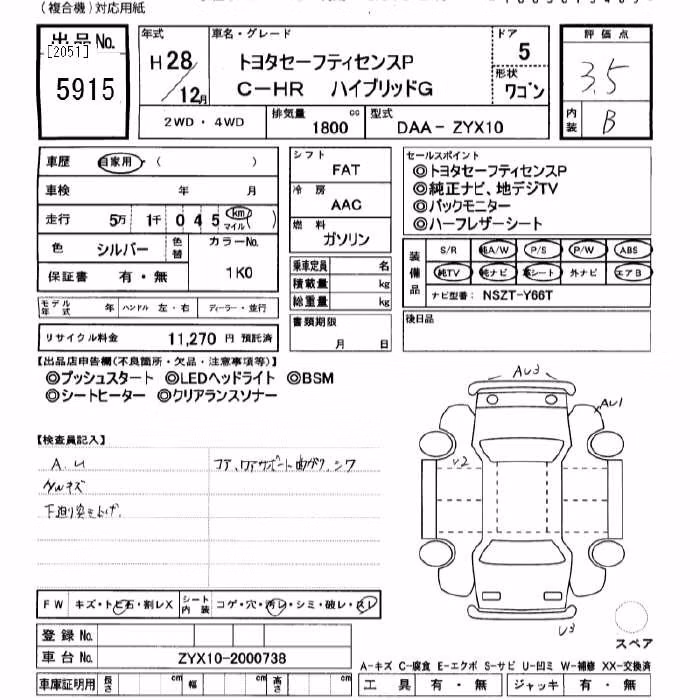 (複合機)対応用紙
出品No.
[2051]
5915
年式
H28
12月
車名・グレード
トヨタセーフティセンスP
C-HR ハイブリッドG
ドア
5
形状
ワゴン
評価点
3.5
内装
B
2WD・4WD
排気量
1800 cc
型式
DAA- ZYX10
車歴 自家用・( )
車検 年 月
走行 5万 1千 0 4 5 km マイル
色 シルバー 色替 カラーNo.
1K0
保証書 有・無
モデル年式 年 ハンドル 左・右 ディーラー・並行
リサイクル料金 11,270 円 預託済
シフト
FAT
冷房
AAC
燃料
ガソリン
乗車定員 名
積載量 kg
総重量 kg
書類期限
月 日
セールスポイント
◎トヨタセーフティセンスP
◎純正ナビ、地デジTV
◎バックモニター
◎ハーフレザーシート
装備品
S/R 純A/W P/S P/W ABS
純TV 純ナビ 革シート 外ナビ エアB
ナビ型番: NSZT-Y66T
後日品
【出品店申告欄(不良箇所・欠品・注意事項等)】
◎プッシュスタート ◎LEDヘッドライト ◎BSM
◎シートヒーター ◎クリアランスソナー
【検査員記入】
A.U
キズ
AU3
AU1
U2
U3
FW キズ・トビ石・割レX
シート内装 コゲ・穴・汚レ・シミ・破レ・スレ
登録No.
車台No. ZYX10-2000738
車庫証明用 長さ cm 幅 cm 高さ cm
スペア
A-キズ C-腐食 E-エクボ S-サビ U-凹ミ W-補修 XX-交換済
工具 有・無 ジャッキ 有・無